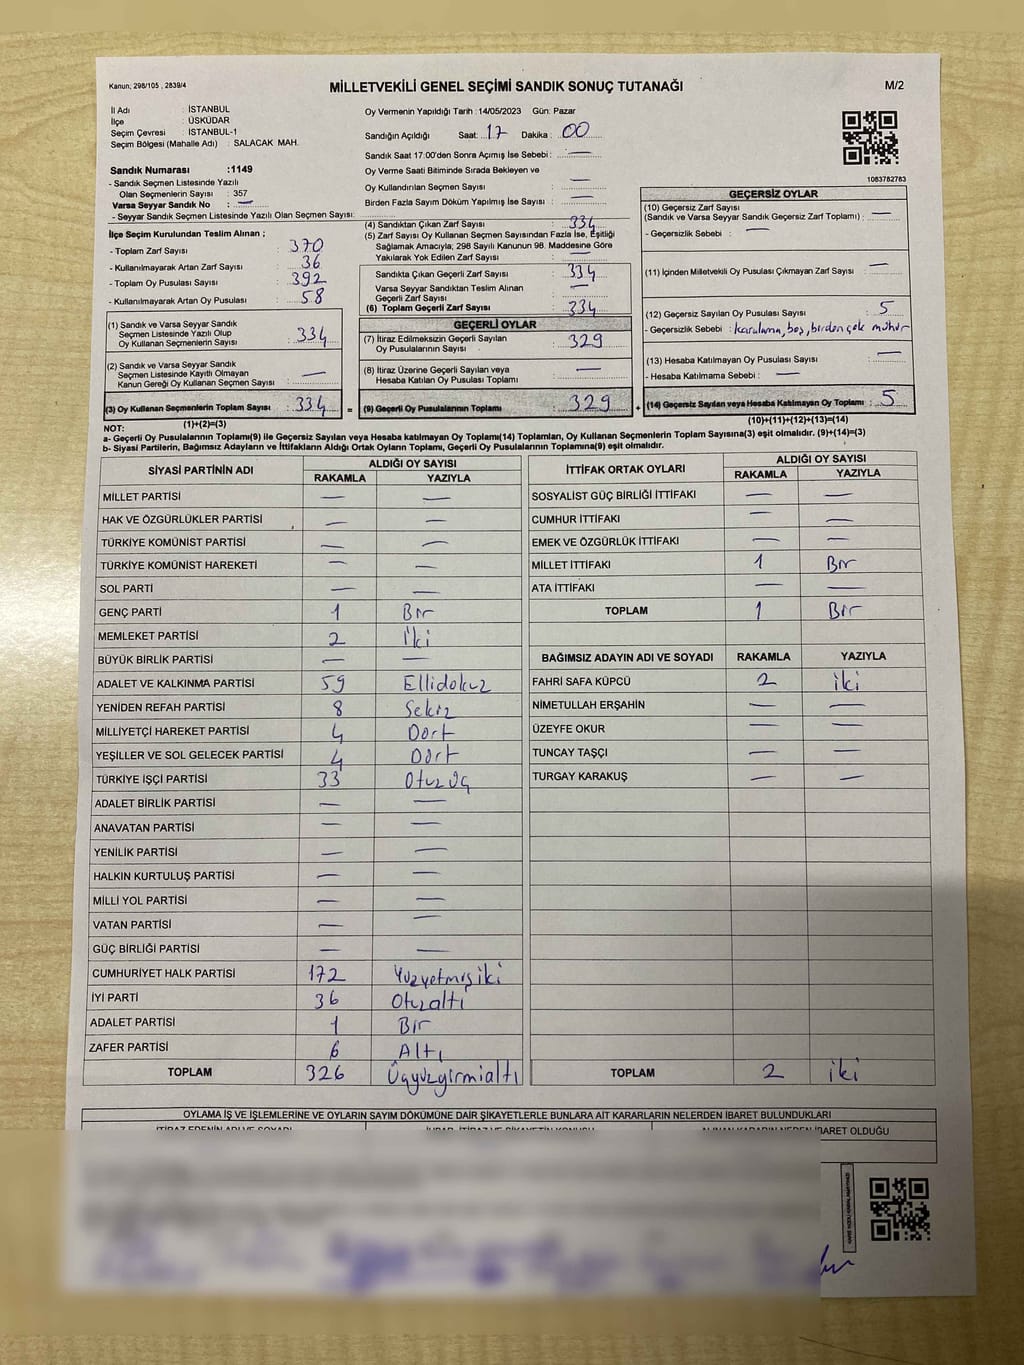 Kanun; 298/105 , 2839/4
MİLLETVEKİLİ GENEL SEÇİMİ SANDIK SONUÇ TUTANAĞI
M/2
İl Adı : İSTANBUL
İlçe : ÜSKÜDAR
Seçim Çevresi : İSTANBUL-1
Seçim Bölgesi (Mahalle Adı) : SALACAK MAH.
Sandık Numarası :1149
- Sandık Seçmen Listesinde Yazılı
Olan Seçmenlerin Sayısı : 357
Varsa Seyyar Sandık No : —
- Seyyar Sandık Seçmen Listesinde Yazılı Olan Seçmen Sayısı:
Oy Vermenin Yapıldığı Tarih : 14/05/2023 Gün: Pazar
Sandığın Açıldığı Saat: 17 Dakika : 00
Sandık Saat 17:00'den Sonra Açımış İse Sebebi : —
Oy Verme Saati Bitiminde Sırada Bekleyen ve
Oy Kullandırılan Seçmen Sayısı —
Birden Fazla Sayım Döküm Yapılmış İse Sayısı : —
1083782783
İlçe Seçim Kurulundan Teslim Alınan ;
- Toplam Zarf Sayısı : 370
- Kullanılmayarak Artan Zarf Sayısı : 36
- Toplam Oy Pusulası Sayısı : 392
- Kullanılmayarak Artan Oy Pusulası : 58
(1) Sandık ve Varsa Seyyar Sandık
Seçmen Listesinde Yazılı Olup
Oy Kullanan Seçmenlerin Sayısı : 334
(2) Sandık ve Varsa Seyyar Sandık
Seçmen Listesinde Kayıtlı Olmayan
Kanun Gereği Oy Kullanan Seçmen Sayısı : —
(3) Oy Kullanan Seçmenlerin Toplam Sayısı : 334 =
(1)+(2)=(3)
(4) Sandıktan Çıkan Zarf Sayısı : 334
(5) Zarf Sayısı Oy Kullanan Seçmen Sayısından Fazla İse, Eşitliği
Sağlamak Amacıyla; 298 Sayılı Kanunun 98. Maddesine Göre
Yakılarak Yok Edilen Zarf Sayısı : —
Sandıkta Çıkan Geçerli Zarf Sayısı : 334
Varsa Seyyar Sandıktan Teslim Alınan
Geçerli Zarf Sayısı : —
(6) Toplam Geçerli Zarf Sayısı : 334
GEÇERLİ OYLAR
(7) İtiraz Edilmeksizin Geçerli Sayılan
Oy Pusulalarının Sayısı : 329
(8) İtiraz Üzerine Geçerli Sayılan veya
Hesaba Katılan Oy Pusulası Toplamı : —
(9) Geçerli Oy Pusulalarının Toplamı : 329 +
GEÇERSİZ OYLAR
(10) Geçersiz Zarf Sayısı
(Sandık ve Varsa Seyyar Sandık Geçersiz Zarf Toplamı) : —
- Geçersizlik Sebebi : —
(11) İçinden Milletvekili Oy Pusulası Çıkmayan Zarf Sayısı : —
(12) Geçersiz Sayılan Oy Pusulası Sayısı : 5
- Geçersizlik Sebebi : karalama, boş, birden çok mühür
(13) Hesaba Katılmayan Oy Pusulası Sayısı : —
- Hesaba Katılmama Sebebi : —
(14) Geçersiz Sayılan veya Hesaba Katılmayan Oy Toplamı : 5
(10)+(11)+(12)+(13)=(14)
NOT:
a- Geçerli Oy Pusulalarının Toplamı(9) ile Geçersiz Sayılan veya Hesaba katılmayan Oy Toplamı(14) Toplamları, Oy Kullanan Seçmenlerin Toplam Sayısına(3) eşit olmalıdır. (9)+(14)=(3)
b- Siyasi Partilerin, Bağımsız Adayların ve İttifakların Aldığı Ortak Oyların Toplamı, Geçerli Oy Pusulalarının Toplamına(9) eşit olmalıdır.
SİYASİ PARTİNİN ADI ALDIĞI OY SAYISI
RAKAMLA YAZIYLA
MİLLET PARTİSİ — —
HAK VE ÖZGÜRLÜKLER PARTİSİ — —
TÜRKİYE KOMÜNİST PARTİSİ — —
TÜRKİYE KOMÜNİST HAREKETİ — —
SOL PARTİ — —
GENÇ PARTİ 1 Bir
MEMLEKET PARTİSİ 2 İki
BÜYÜK BİRLİK PARTİSİ — —
ADALET VE KALKINMA PARTİSİ 59 Ellidokuz
YENİDEN REFAH PARTİSİ 8 Sekiz
MİLLİYETÇİ HAREKET PARTİSİ 4 Dört
YEŞİLLER VE SOL GELECEK PARTİSİ 4 Dört
TÜRKİYE İŞÇİ PARTİSİ 33 Otuzüç
ADALET BİRLİK PARTİSİ — —
ANAVATAN PARTİSİ — —
YENİLİK PARTİSİ — —
HALKIN KURTULUŞ PARTİSİ — —
MİLLİ YOL PARTİSİ — —
VATAN PARTİSİ — —
GÜÇ BİRLİĞİ PARTİSİ — —
CUMHURİYET HALK PARTİSİ 172 Yüzyetmişiki
İYİ PARTİ 36 Otuzaltı
ADALET PARTİSİ 1 Bir
ZAFER PARTİSİ 6 Altı
TOPLAM 326 Üçyüzyirmialtı
İTTİFAK ORTAK OYLARI ALDIĞI OY SAYISI
RAKAMLA YAZIYLA
SOSYALİST GÜÇ BİRLİĞİ İTTİFAKI — —
CUMHUR İTTİFAKI — —
EMEK VE ÖZGÜRLÜK İTTİFAKI — —
MİLLET İTTİFAKI 1 Bir
ATA İTTİFAKI — —
TOPLAM 1 Bir
BAĞIMSIZ ADAYIN ADI VE SOYADI RAKAMLA YAZIYLA
FAHRİ SAFA KÜPCÜ 2 iki
NİMETULLAH ERŞAHİN — —
ÜZEYFE OKUR — —
TUNCAY TAŞÇI — —
TURGAY KARAKUŞ — —
TOPLAM 2 iki
OYLAMA İŞ VE İŞLEMLERİNE VE OYLARIN SAYIM DÖKÜMÜNE DAİR ŞİKAYETLERLE BUNLARA AİT KARARLARIN NELERDEN İBARET BULUNDUKLARI
İBARET OLDUĞU